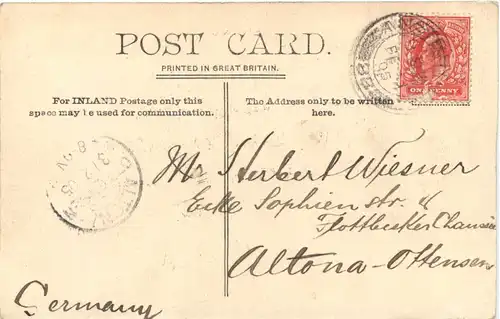 POST CARD.
PRINTED IN GREAT BRITAIN.
For INLAND Postage only this
space may be used for communication.
The Address only to be written
here.
ONE PENNY
Mr Herbert Wiesner
Ecke Sophienstr. &
Flottbecker Chaussee
Altona-Ottensen
Germany